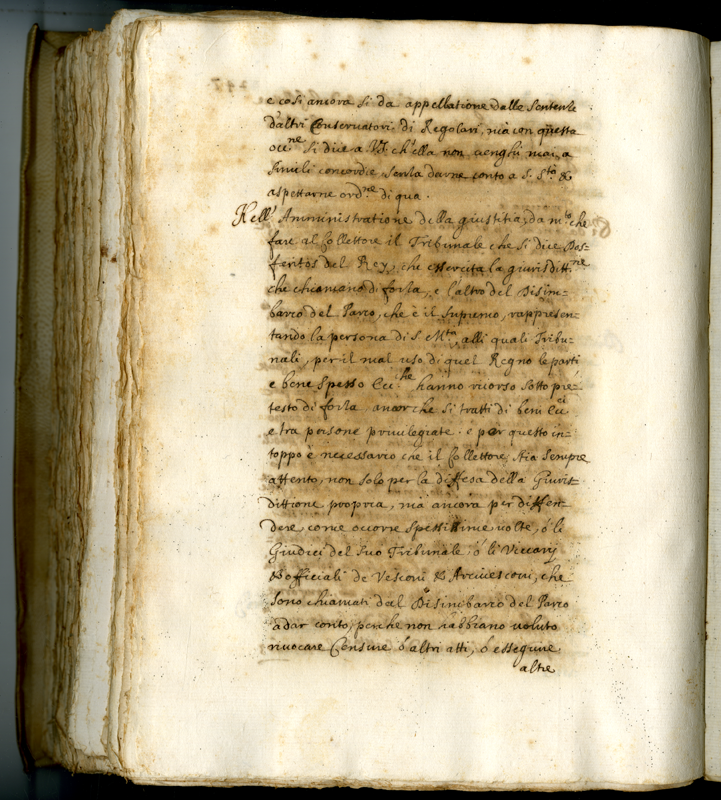 e così ancora si da appellatione dalle sentenze
d'altri Conservatori di Regolari, ma con questa
occ.ne si dice a V.S. ch'ella non venghi mai, a
simili concordie, senza darne conto a S. S.tà &
aspettarne ord.ne di qua.
Nell' Amministratione della giustitia, da m.to che
fare al Collettore il Tribunale che si dice Des-
feritos del Rey, che essercita la giurisditt.ne
che chiamano di forza, e l'altro del Disim-
barco del Parco, che è il supremo, rappresen-
tando la persona di S. M.tà, alli quali Tribu-
nali, per il mal uso di quel Regno le parti
e bene spesso Ecc.che hanno ricorso sotto pre-
testo di forza, ancorche si tratti di beni Ecc.ci
e tra persone privilegiate. e per questo in-
toppo è necessario che il Collettore stia sempre
attento, non solo per la diffesa della Giuris-
dittione propria, ma ancora per diffen-
dere come occorre spessissime volte, ó li
Giudici del suo Tribunale, ó li Viccarij
& officiali de Vescovi & Arcivescovi, che
sono chiamati dal Disimbarco del Parco
a dar conto, perche non habbiano voluto
rivocare Censure ó altri atti, ó esseguire
altre